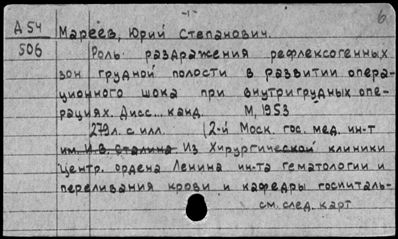 -1-
6
Д 54
506
Мареев, Юрий Степанович.
Роль раздражения рефлексогенных
зон грудной полости в развитии опера-
ционного шока при внутригрудных опе-
рациях. Дисс... канд. М, 1953
279л. с илл. (2-й Моск. гос. мед. ин-т
им. И.В. Сталина Из Хирургической клиники
Центр. ордена Ленина ин-та гематологии и
переливания крови и кафедры госпиталь-
см. след. карт